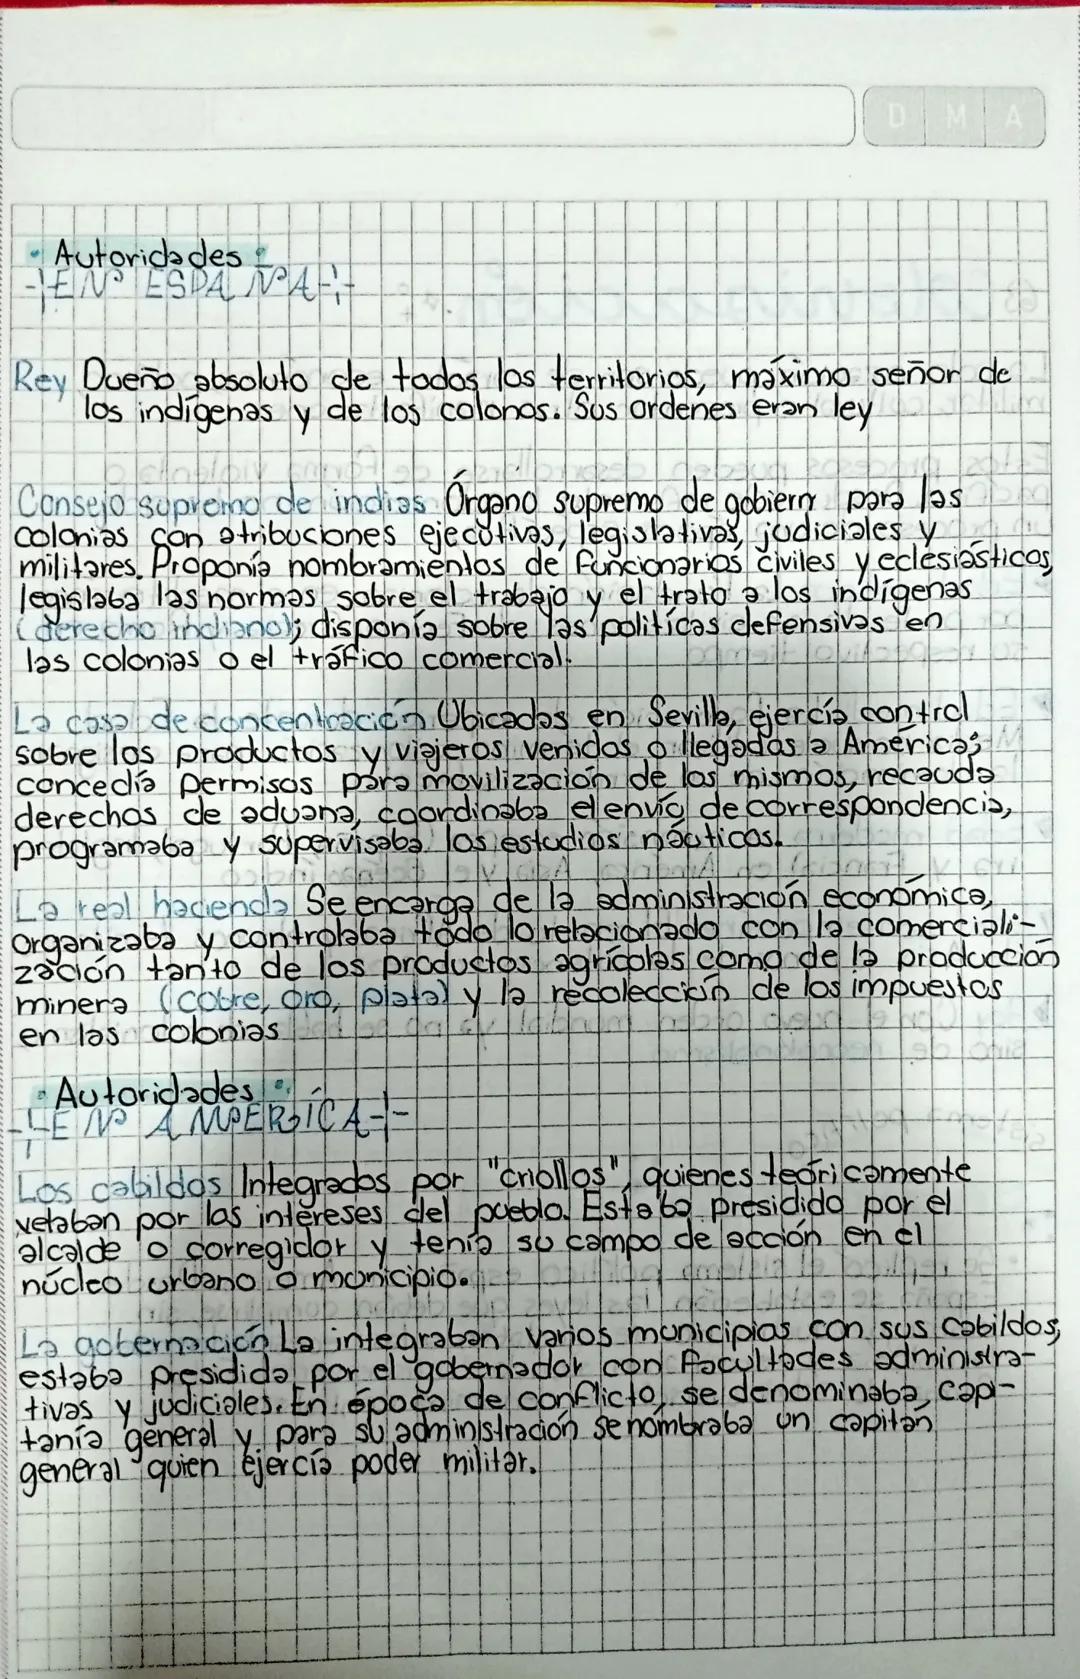 D M A
• Autoridades •
EN ESPAÑA
Rey Dueño absoluto de todos los territorios, máximo señor de
los indígenas y de los colonos. Sus ordenes eran ley
Consejo supremo de indias Órgano supremo de gobiern para las
colonias con atribuciones ejecutivas, legislativas, judiciales y
militares. Proponía nombramientos de funcionarios civiles y eclesiásticos,
legislaba las normas sobre el trabajo y el trato a los indígenas
(derecho indiano); disponía sobre las politícas defensivas en
las colonias o el tráfico comercial.
La casa de concentración Ubicadas en Sevilla, ejercía control
sobre los productos y viajeros venidos o llegadas a América;
concedía permisos para movilización de los mismos, recauda
derechos de aduana, coordinaba el envío de correspondencia,
programaba y supervisaba los estudios náuticos.
La real hacienda Se encarga de la administración económica,
organizaba y controlaba todo lo relacionado con la comerciali-
zación tanto de los productos agrícolas como de la producción
minera (cobre, oro, plata) y la recolección de los impuestos
en las colonias
• Autoridades •
EN AMERÍCA
Los cabildos Integrados por "criollos", quienes teóricamente
vetaban por los intereses del pueblo. Estaba presidido por el
alcalde o corregidor y tenía su campo de acción en el
núcleo urbano o municipio.
La gobernación La integraban varios municipios con sus cabildos,
estaba presidida por el gobernador con facultades administra-
tivas y judiciales. En época de conflicto, se denominaba, capi-
tanía general y para su administración se nombraba un capitán
general quien ejercía poder militar.